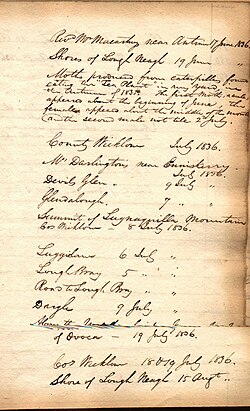 Revd Wm Macartney near Antrim 17 June 1836
Shores of Lough Neagh 19 June "
Moth produced from caterpillar found
eating on Tea Plant in my yard, in
the Autumn of 1835. The first moth, a male,
appeared about the beginning of June, the
females appeared about the middle of the month
and the second male not till 2 July.
County Wicklow July 1836.
Mr Darlington's, near Enniskerry
July 1836.
Devils Glen. 9 July "
Glendalough. 7 " "
Summit of Lugnaquilla Mountain
Cos Wicklow — 8 July 1836.
Luggelaw 6 July "
Lough Bray 5 " "
Road to Lough Bray " "
Dargle 9 July "
of Ovoca — 19 July 1836.
Cos Wicklow 18 & 19 July 1836.
Shore of Lough Neagh 15 Augt "